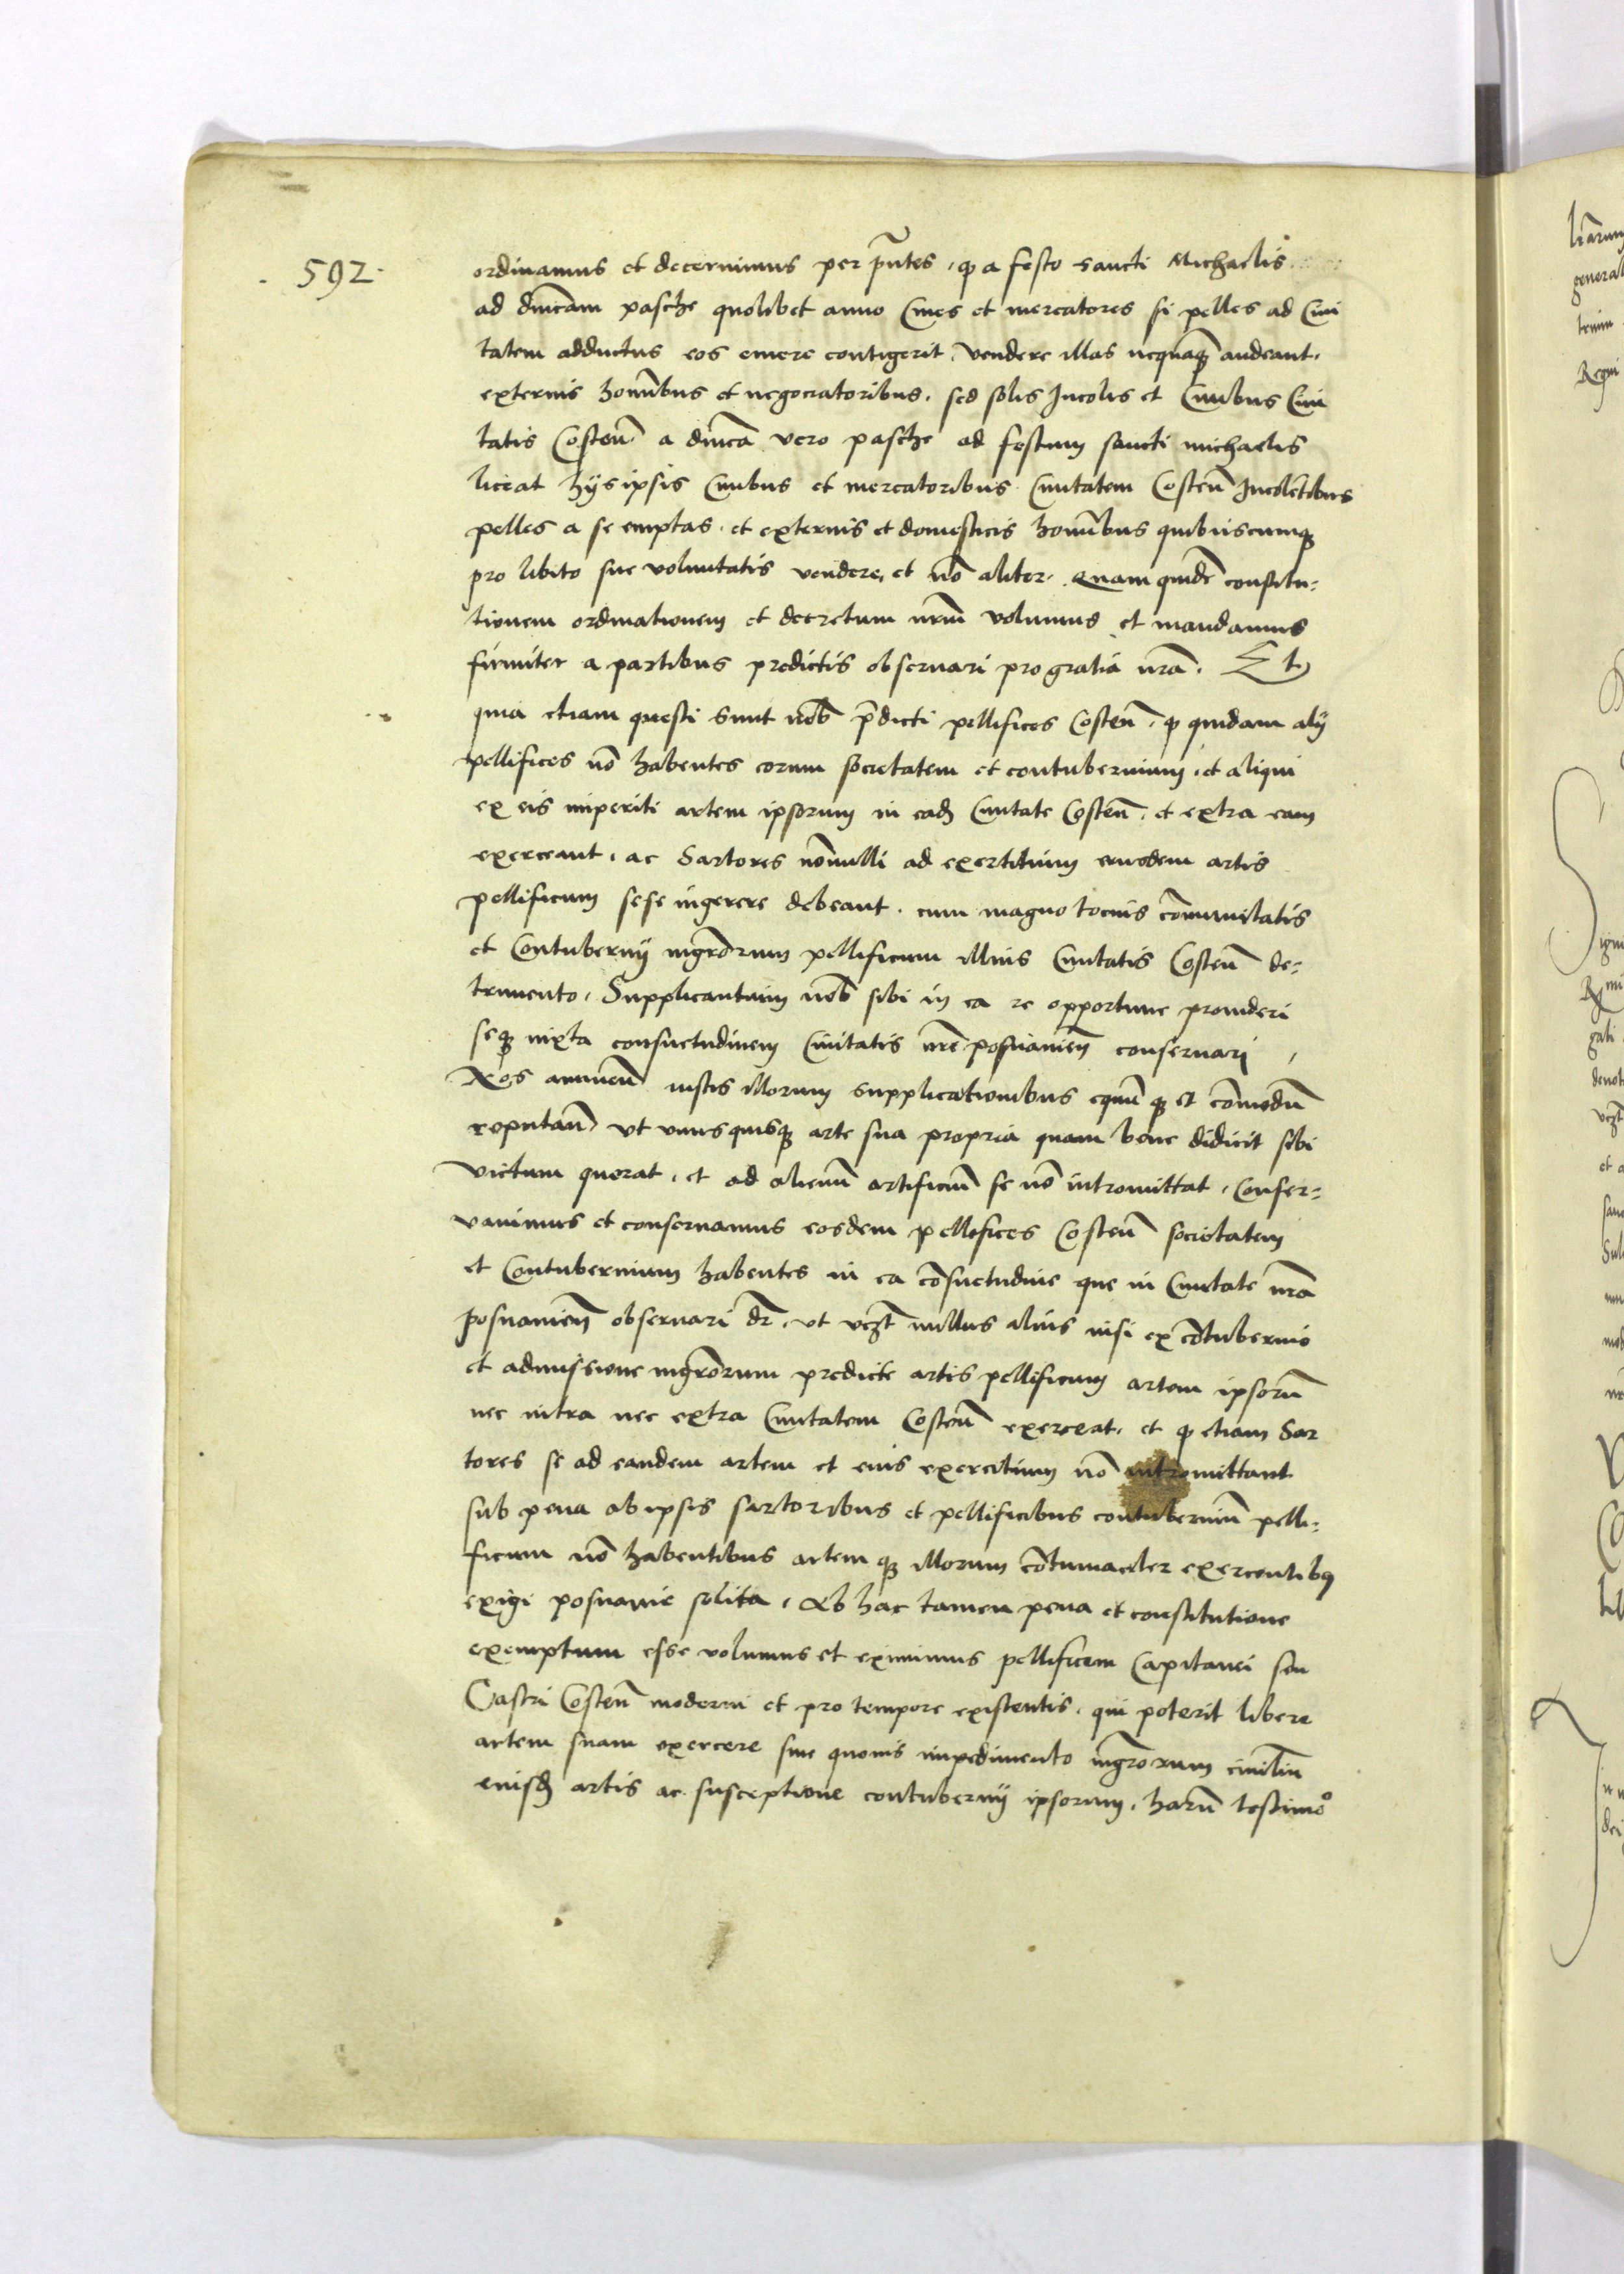 592
ordinamus et decernimus per pñtes, ꝙ a festo sancti Michaelis
ad dnicam pasche quolibet anno Ciues et mercatores si pelles ad Ciui
tatem adductas eos emere contigerit, vendere illas nequaqꝫ audeant,
externis hominibus et negociatoribus, sed solis Incolis et Ciuibus Ciui
tatis Costeñ a dnica vero pasche ad festum sancti michaelis
liceat hys ipsis Ciuibus et mercatoribus Ciuitatem Costeñ Incolentibus
pelles a se emptas, et externis et domesticis hominibus quibuscumqꝫ
pro libito sue voluntatis vendere, et nõ aliter. Quam quidẽ constitu-
tionem ordinationem et decretum nrm̃ volumus et mandamus
firmiter a partibus predictis obseruari pro gratia nrã. Et
quia etiam questi sunt nob̃ p̃dicti pellifices Costeñ, ꝙ quidam alij
pellifices nõ habentes eorum societatem et contubernium, et aliqui
ex eis imperiti artem ipsorum in eadꝫ Ciuitate Costeñ, et extra eam
exerceant, ac Sartores nõnulli ad exertitium eiusdem artis
pellificum sese ingerere debeant, cum magno tocius cõmunitatis
et Contubernij mgrõrum pellificum illius Ciuitatis Costeñ de-
trimento, Supplicantium nob̃ sibi in ea re opportune prouideri
seqꝫ iuxta consuetudinem Ciuitatis nrẽ posnanieñ conseruari,
Nos annueñ iustis illorum supplicationibus equũ qꝫ et cõmodũ
reputañ vt vnusquisqꝫ arte sua propria quam bene didicit sibi
victum querat, et ad alienũ artificiũ se nõ intromittat, Conser-
vauimus et conseruamus eosdem pellifices Costeñ societatem
et Contubernium habentes in ea cõsuetudine que in Ciuitate nrã
posnanieñ obseruari dr̃, vt vcꝫt nullus alius nisi ex cõtubernio
et admissione mgrõrum predicte artis pellificum artem ipsorũ
nec intra nec extra Ciuitatem Costeñ exerceat, et ꝙ etiam Sar
tores se ad eandem artem et eius exercitium nõ intromittant
sub pena ab ipsis sartoribus et pellificibus contuberniũ pelli-
ficum nõ habentibus artem qꝫ illorum cõtumaciter exercentibꝰ
exigi posnanie solita, Ab hac tamen pena et constitutione
exemptum esse volumus et eximimus pellificem Capitanei seu
Castri Costeñ moderni et pro tempore existentis, qui poterit libere
artem suam exercere sine quouis impedimento mgrõrum ciuiliũ
eiusdꝫ artis ac susceptione contubernij ipsorum, harũ testimoº